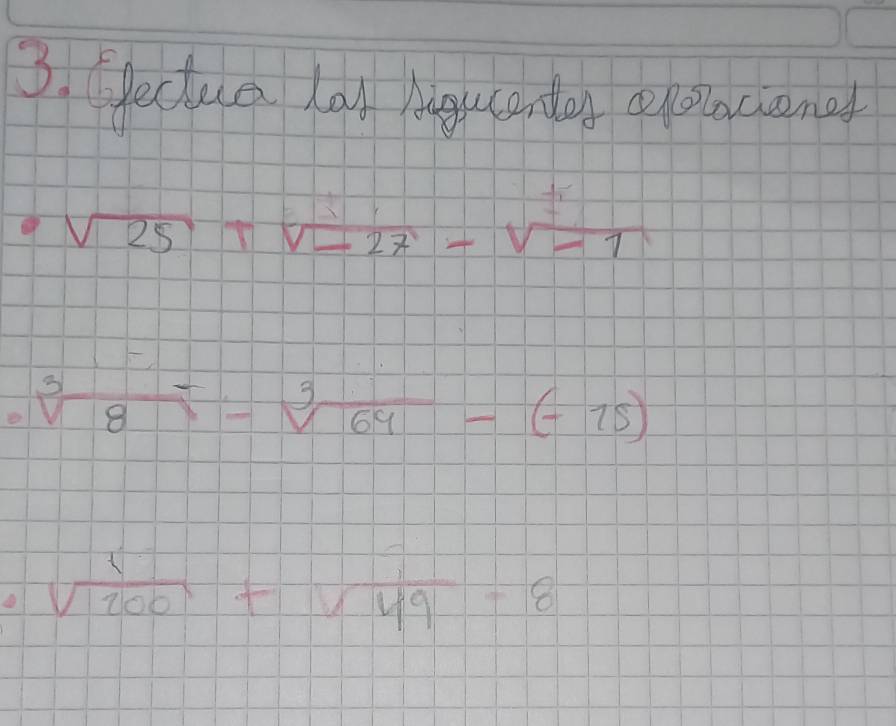 3. Efectua las siguientes operaciones
• √25 + √-27 - √-1
• ∛8 - ∛64 - (-15)
• √100 + √49 - 8